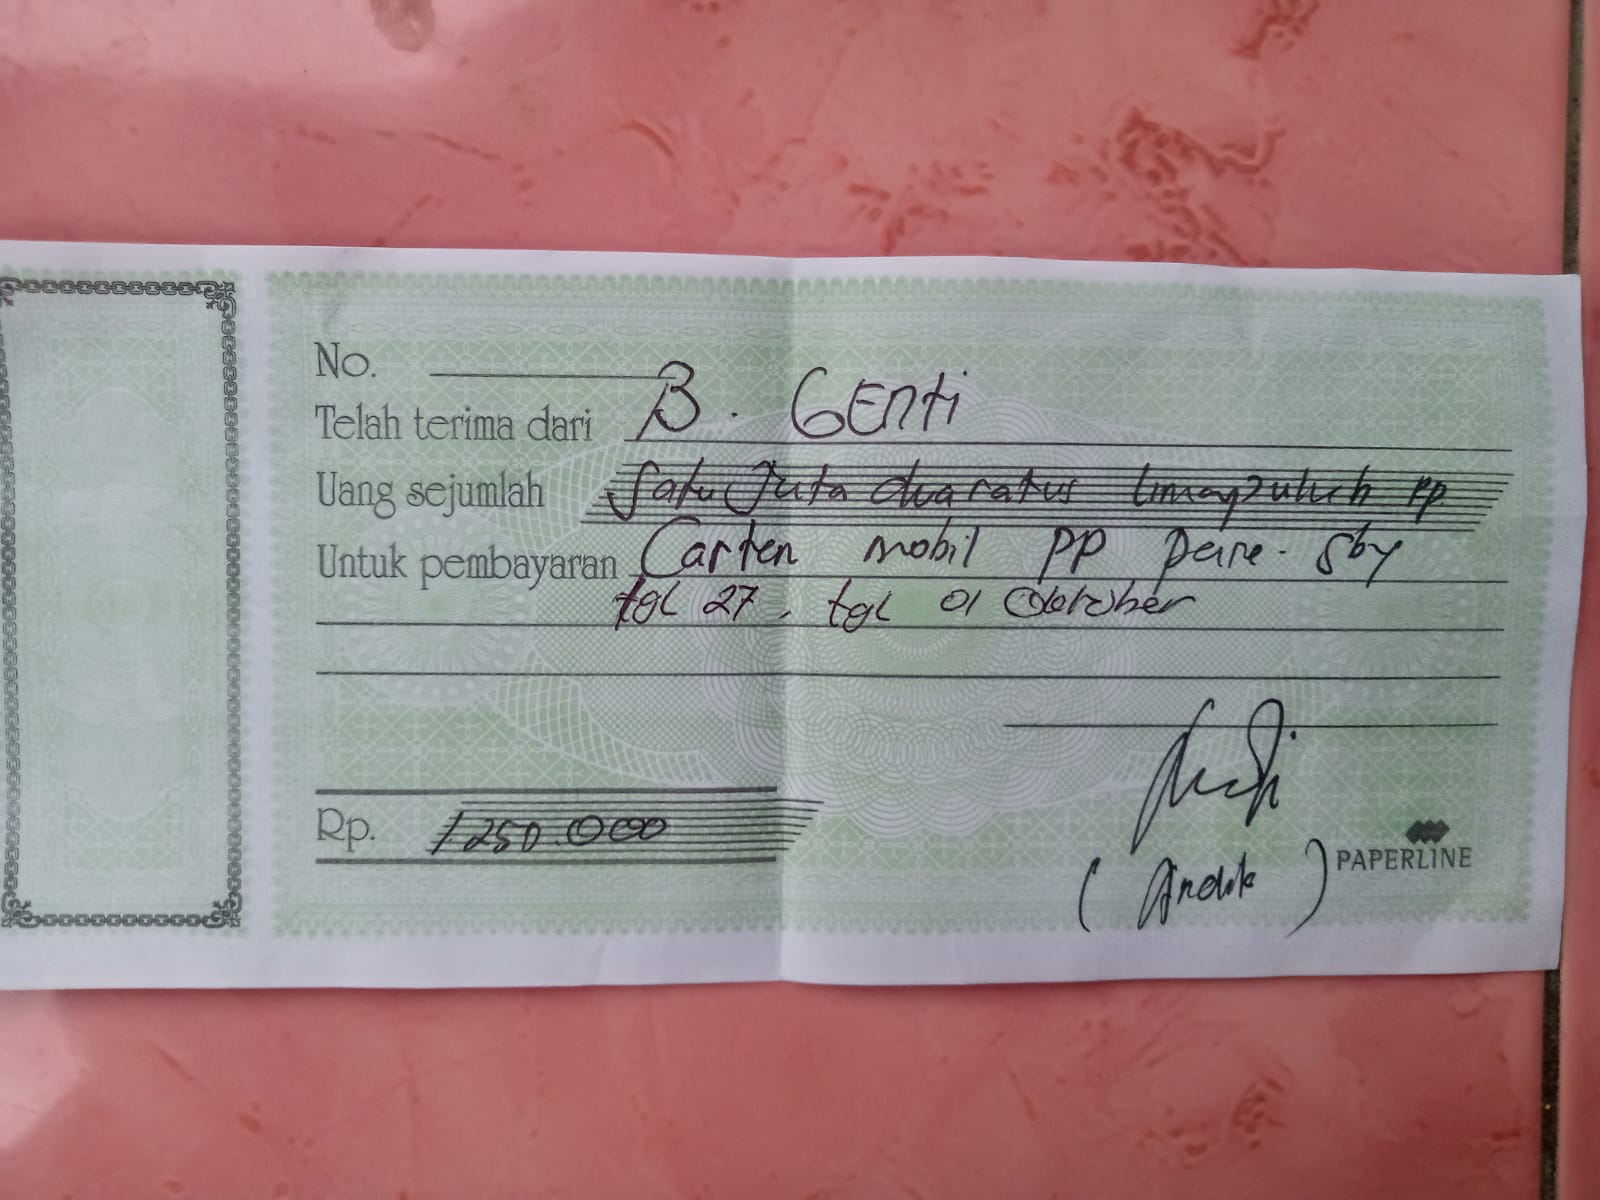 No.
Telah terima dari B. GEnti
Uang sejumlah Satu Juta dua ratus limapuluh rp
Untuk pembayaran Carten mobil PP Pare - Sby
tgl 27, tgl 01 Oktober
Rp. 1.250.000
(Andik)
PAPERLINE